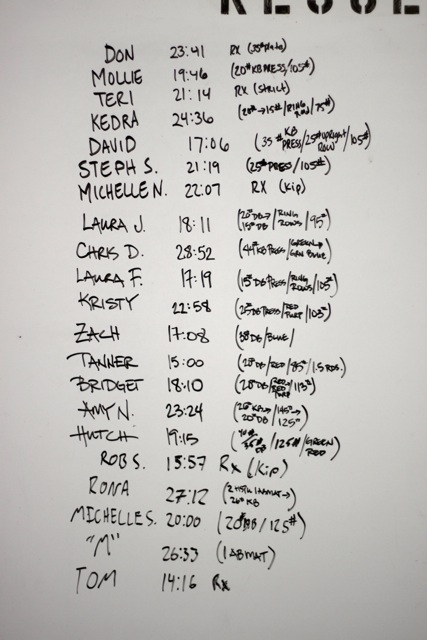 RESUL
DON 23:41 RX (35# plate)
MOLLIE 19:46 (20# KB PRESS/105#)
TERI 21:14 RX (STRICT)
KEDRA 24:36 (20#→15#/RING ROW/75#)
DAVID 17:06 (35# KB PRESS/25# UPRIGHT ROW/105#)
STEPH S. 21:19 (25# PRESS/105#)
MICHELLE N. 22:07 RX (Kip)
LAURA J. 18:11 (20# DB→15# DB/RING ROWS/95#)
CHRIS D. 28:52 (44# KB PRESS/GREEN→GRN BLUE)
LAURA F. 17:19 (15# DB PRESS/RING ROWS/105#)
KRISTY 22:58 (25# DB PRESS/RED PURP/103#)
ZACH 17:08 (38 DB/BLUE/
TANNER 15:00 (20# DB/RED/85#/1.5 RDS.)
BRIDGET 18:10 (20# DB/RED PURP/113#)
AMY N. 23:24 (26# KB→20# DB/145#→125#)
HUTCH 19:15 (35# DB/125#/GREEN RED)
ROB S. 15:57 Rx (Kip)
RONA 27:12 (ABMAT→26# KB)
MICHELLE S. 20:00 (20# DB/125#)
"M" 26:33 (1 ABMAT)
TOM 14:16 Rx